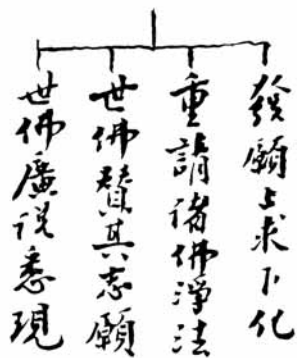 發願上求下化
重請诸佛淨法
世佛賛其志願
世佛廣说悉現